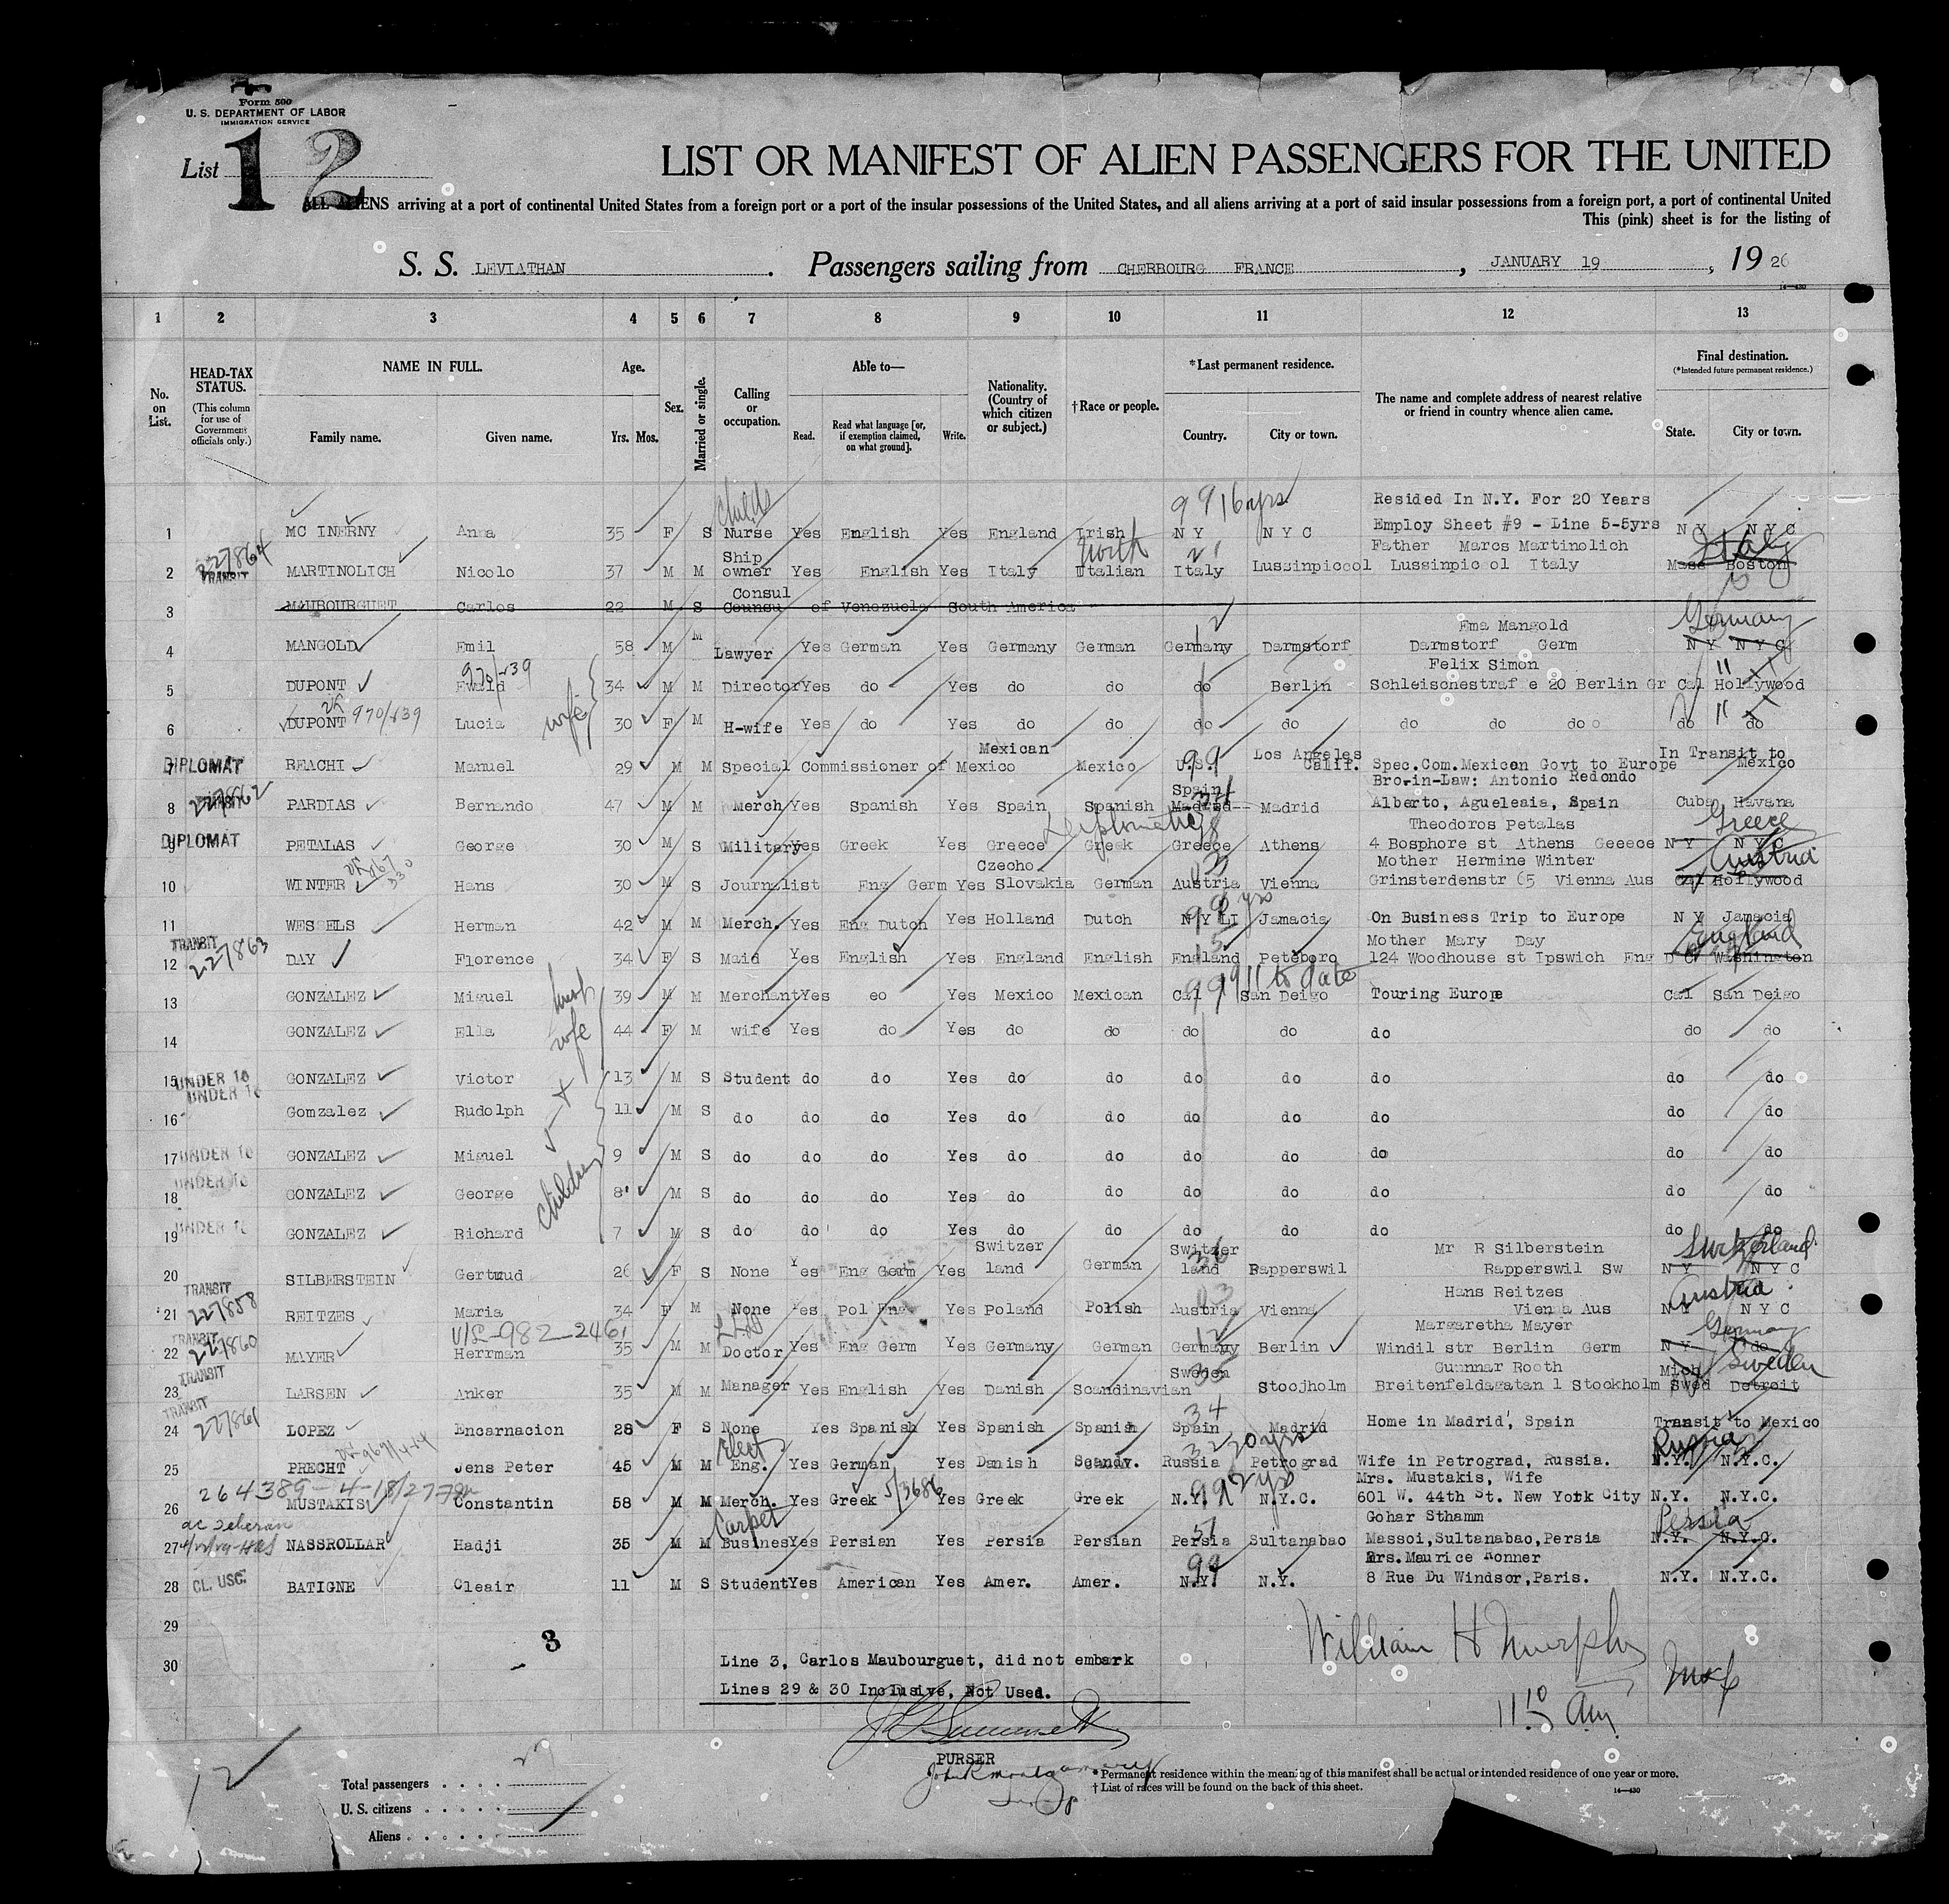 Form 500
U. S. DEPARTMENT OF LABOR
IMMIGRATION SERVICE
List 12
LIST OR MANIFEST OF ALIEN PASSENGERS FOR THE UNITED
ALL ALIENS arriving at a port of continental United States from a foreign port or a port of the insular possessions of the United States, and all aliens arriving at a port of said insular possessions from a foreign port, a port of continental United
This (pink) sheet is for the listing of
S. S. LEVIATHAN . Passengers sailing from CHERBOURG FRANCE , JANUARY 19 , 19 26
14—430
1 2 3 4 5 6 7 8 9 10 11 12 13
No. on List.
HEAD-TAX STATUS. (This column for use of Government officials only.)
NAME IN FULL. Family name. Given name.
Age. Yrs. Mos.
Sex.
Married or single.
Calling or occupation.
Able to— Read. Read what language [or, if exemption claimed, on what ground]. Write.
Nationality. (Country of which citizen or subject.)
†Race or people.
*Last permanent residence. Country. City or town.
The name and complete address of nearest relative or friend in country whence alien came.
Final destination. (*Intended future permanent residence.) State. City or town.
Childs 99 16 yrs Resided In N.Y. For 20 Years
1 MC INERNY Anna 35 F S Nurse Yes English Yes England Irish N Y N Y C Employ Sheet #9 - Line 5-5yrs N Y N Y C
227864 TRANSIT Ship North Father Marcs Martinolich Italy
2 MARTINOLICH Nicolo 37 M M owner Yes English Yes Italy Italian Italy Lussinpiccol Lussinpicol Italy Mass Boston
Consul
3 MAUBOURGUET Carlos 22 M S Counsu of Venezuela South America
Ema Mangold Germany
4 MANGOLD Emil 58 M M Lawyer Yes German Yes Germany German Germany Darmstorf Darmstorf Germ N Y N Y C
970/839 Felix Simon
5 DUPONT Ewald 34 M M Director Yes do Yes do do do Berlin Schleischestraf e 20 Berlin Gr Cal Hollywood
6 DUPONT 970/839 Lucia wife 30 F M H-wife Yes do Yes do do do do do do do do do
Mexican Los Angeles In Transit to
7 DIPLOMAT REACHI Manuel 29 M M Special Commissioner of Mexico Mexico U.S. 99 Calif. Spec.Com.Mexican Govt to Europe Mexico
227862 Spain Bro-in-Law: Antonio Redondo
8 PARDIAS Bernando 47 M M Merch Yes Spanish Yes Spain Spanish Madrid-- Madrid Alberto, Agueleaia, Spain Cuba Havana
Diplomatic Theodoros Petalas Greece
9 DIPLOMAT PETALAS George 30 M S Military Yes Greek Yes Greece Greek Greece Athens 4 Bosphore st Athens Geeece N Y N Y C
Czecho Mother Hermine Winter Austria
10 WINTER Hans 30 M S Journalist Eng Germ Yes Slovakia German Austria Vienna Grinsterdenstr 65 Vienna Aus Cal Hollywood
11 WESSELS Herman 42 M M Merch. Yes Eng Dutch Yes Holland Dutch N Y LI Jamacia On Business Trip to Europe N Y Jamacia
TRANSIT 227863 Mother Mary Day England
12 DAY Florence 34 F S Maid Yes English Yes England English England Peteboro 124 Woodhouse st Ipswich Eng D C Washington
99 1911 to date
13 GONZALEZ Miguel 39 M M Merchant Yes eo Yes Mexico Mexican Cal San Deigo Touring Europe Cal San Deigo
14 GONZALEZ Ella wife 44 F M wife Yes do Yes do do do do do do do
15 UNDER 16 GONZALEZ Victor 13 M S Student do do Yes do do do do do do do
16 UNDER 16 Gomzalez Rudolph 11 M S do do do Yes do do do do do do do
17 UNDER 16 GONZALEZ Miguel 9 M S do do do Yes do do do do do do do
18 UNDER 16 GONZALEZ George children 8 M S do do do Yes do do do do do do do
19 UNDER 16 GONZALEZ Richard 7 M S do do do Yes do do do do do do do
Switzer Switzer Mr R Silberstein Switzerland
20 SILBERSTEIN Gertrud 26 F S None Yes Eng Germ Yes land German land Rapperswil Rapperswil Sw N Y N Y C
TRANSIT 227858 03 Hans Reitzes Austria
21 REITZES Maria 34 F M None Yes Pol Eng Yes Poland Polish Austria Vienna Vienna Aus N Y N Y C
TRANSIT 227860 V/L-982-2461 Margaretha Mayer Germany
22 MAYER Herrman 35 M M Doctor Yes Eng Germ Yes Germany German Germany Berlin Windil str Berlin Germ N Y do
TRANSIT Sweden Gunnnar Rooth Mich Sweden
23 LARSEN Anker 35 M M Manager Yes English Yes Danish Scandinavian Stoojholm Breitenfeldagatan 1 Stockholm Swed Detroit
TRANSIT 227861 34
24 LOPEZ Encarnacion 28 F S None Yes Spanish Yes Spanish Spanish Spain Madrid Home in Madrid, Spain Transit to Mexico
Elect 32 20 yrs Russia
25 PRECHT Jens Peter 45 M M Eng. Yes German Yes Danish Scandv. Russia Petrograd Wife in Petrograd, Russia. N.Y. N.Y.C.
264389-4-18/2778 5/3686 99 2 yrs Mrs. Mustakis, Wife
26 MUSTAKIS Constantin 58 M M Merch. Yes Greek Yes Greek Greek N.Y. N.Y.C. 601 W. 44th St. New York City N.Y. N.Y.C.
Carpet 51 Gohar Sthamm Persia
27 NASSROLLAR Hadji 35 M M Busines Yes Persian Yes Persia Persian Persia Sultanabao Massoi,Sultanabao,Persia N.Y. N.Y.C.
99 Mrs.Maurice Monner
28 CL. USC. BATIGNE Cleair 11 M S Student Yes American Yes Amer. Amer. N.Y. N.Y. 8 Rue Du Windsor,Paris. N.Y. N.Y.C.
29
30
3
William H Murphy
11 10 am
Line 3, Carlos Maubourguet, did not embark
Lines 29 & 30 Inclusive, Not Used.
PURSER
12
Total passengers
U. S. citizens
Aliens
*Permanent residence within the meaning of this manifest shall be actual or intended residence of one year or more.
†List of races will be found on the back of this sheet.
14—430